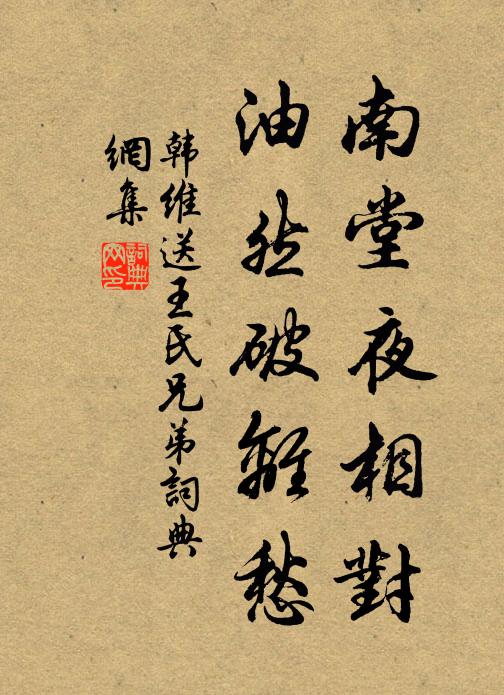 南堂夜相對
油然破離愁
韩维送王氏兄弟詞典
網集
詞典
网印